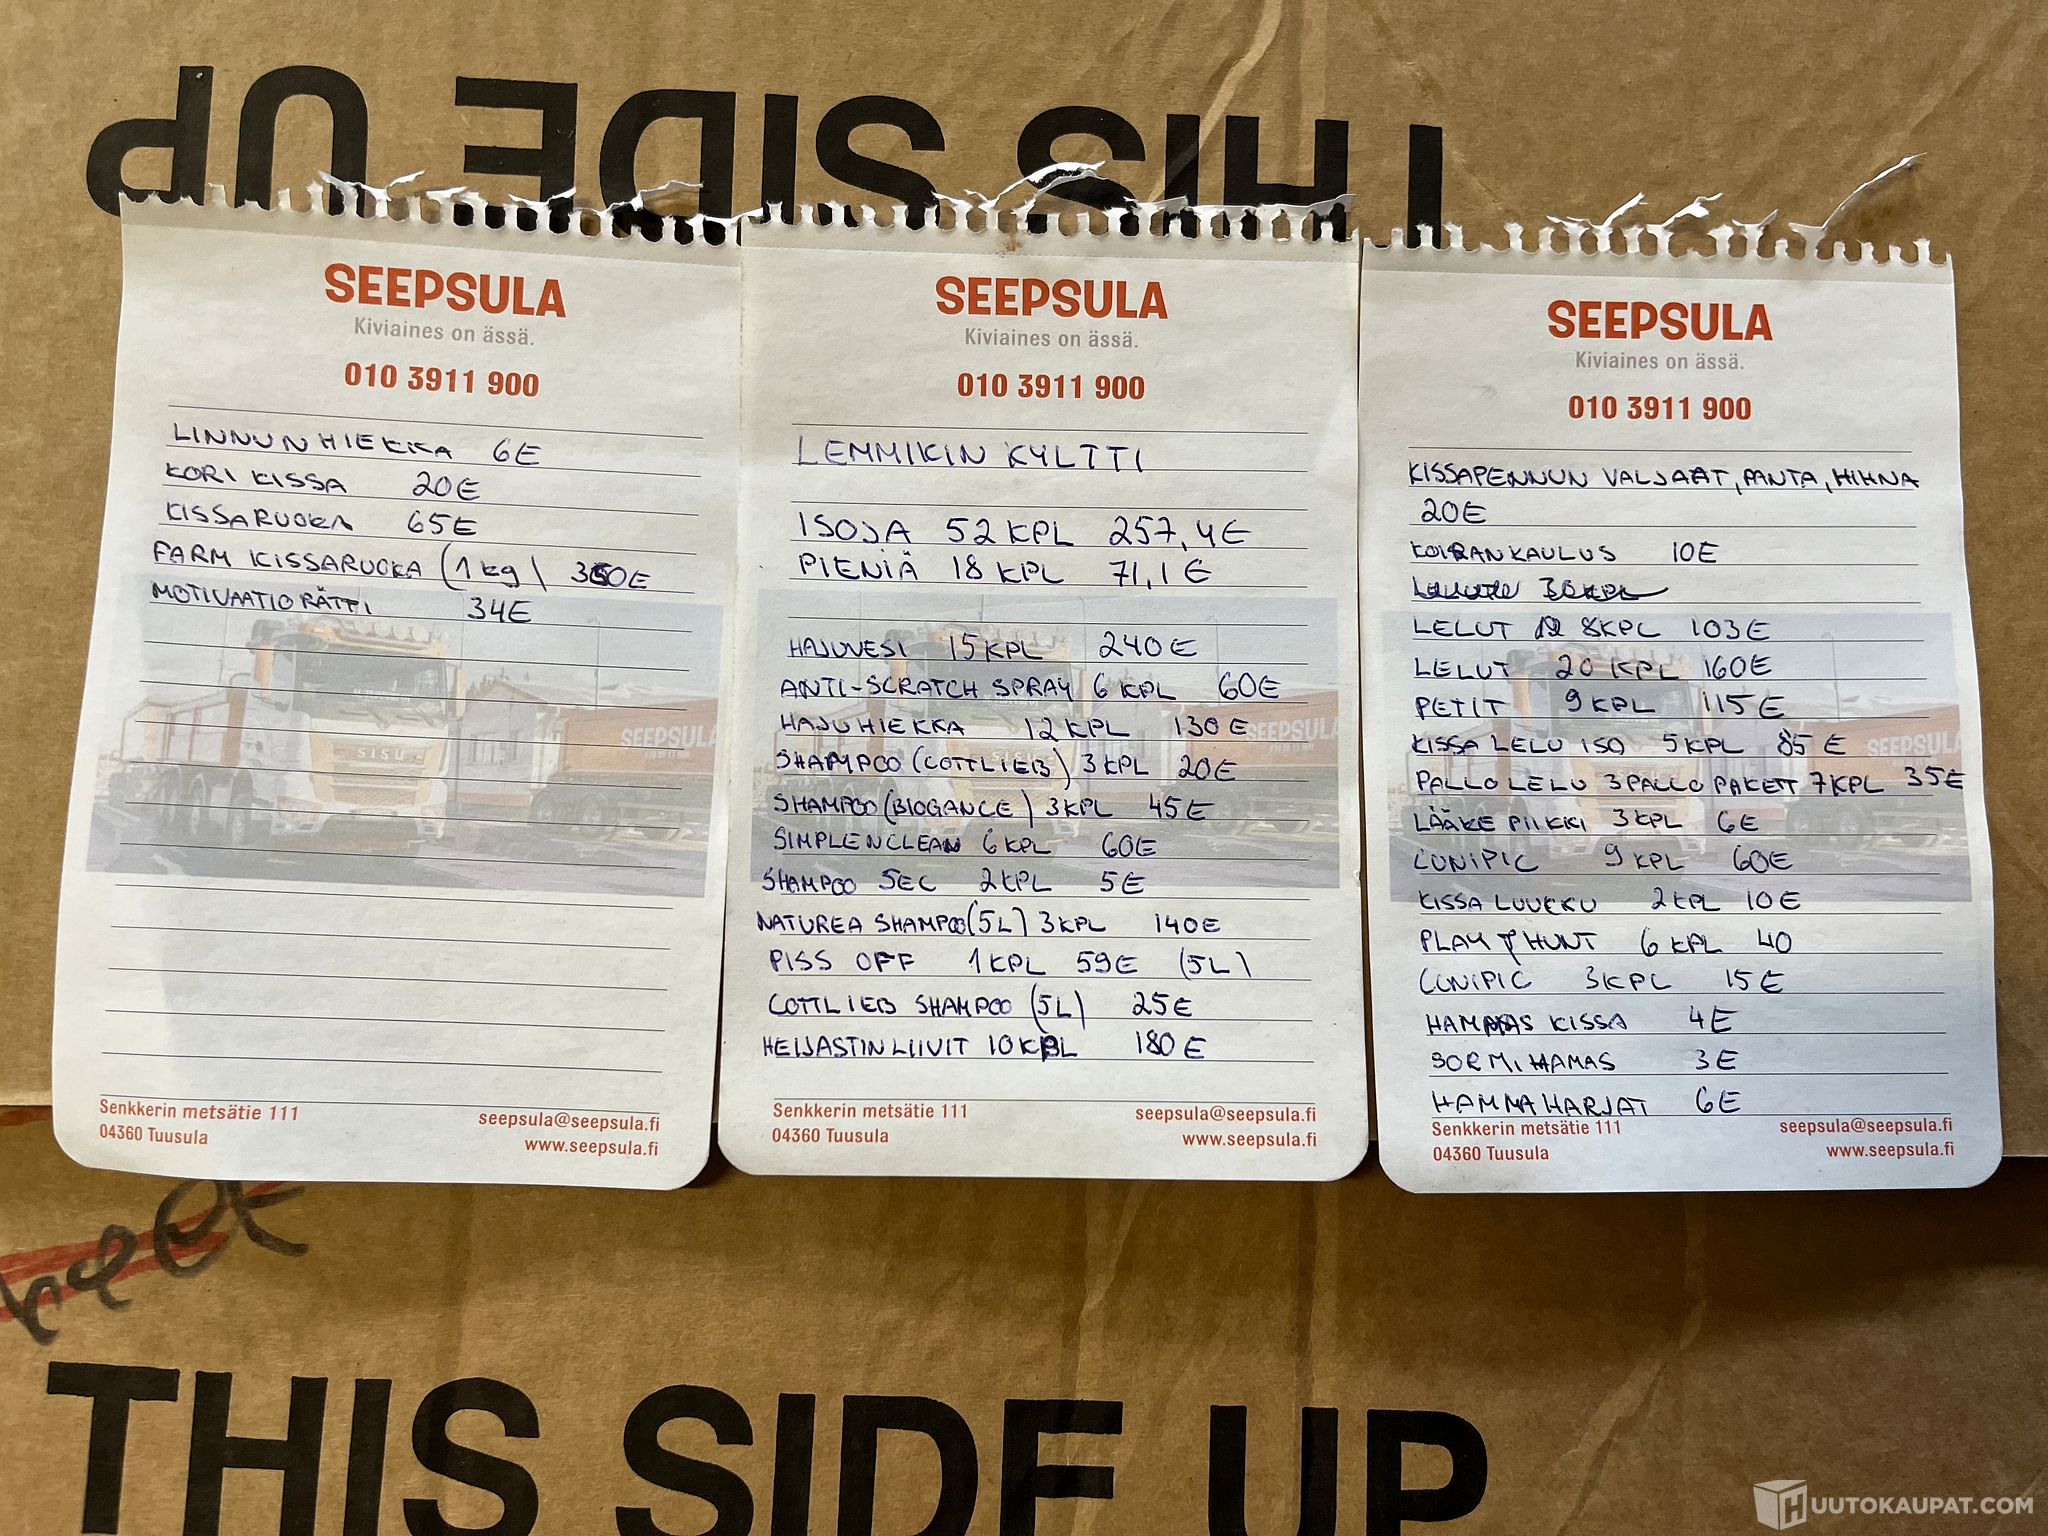 THIS SIDE UP
SEEPSULA
Kiviaines on ässä.
010 3911 900
LINNUNHIEKKA 6E
KORI KISSA 20E
KISSARUOKA 65E
FARM KISSARUOKA (1kg) 350E
MOTIVAATIORÄTTI 34E
SISU
SEEPSULA
Senkkerin metsätie 111
04360 Tuusula
seepsula@seepsula.fi
www.seepsula.fi
SEEPSULA
Kiviaines on ässä.
010 3911 900
LEMMIKIN KYLTTI
ISOJA 52 KPL 257,4E
PIENIÄ 18 KPL 71,1E
HAJUVESI 15 KPL 240E
ANTI-SCRATCH SPRAY 6 KPL 60E
HAJUHIEKKA 12 KPL 130E
SHAMPOO (COTTLIEB) 3KPL 20E
SHAMPOO (BIOGANCE) 3KPL 45E
SIMPLENCLEAN 6 KPL 60E
SHAMPOO 5EC 2KPL 5E
NATUREA SHAMPOO (5L) 3KPL 140E
PISS OFF 1KPL 59E (5L)
COTTLIEB SHAMPOO (5L) 25E
HEIJASTINLIIVIT 10KPL 180E
SEEPSULA
Senkkerin metsätie 111
04360 Tuusula
seepsula@seepsula.fi
www.seepsula.fi
SEEPSULA
Kiviaines on ässä.
010 3911 900
KISSAPENNUN VALJAAT, PANTA, HIHNA
20E
KOIRANKAULUS 10E
LELUT 8KPL 103E
LELUT 20 KPL 160E
PETIT 9KPL 115E
KISSA LELU ISO 5KPL 85E
PALLO LELU 3 PALLO PAKETT 7KPL 35E
LÄÄKE PIIKKI 3KPL 6E
CUNIPIC 9KPL 60E
KISSA LUUKKU 2KPL 10E
PLAY HUNT 6 KPL 40
CUNIPIC 3KPL 15E
HAMMAS KISSA 4E
SORMIHAMAS 3E
HAMMAHARJAT 6E
SEEPSULA
Senkkerin metsätie 111
04360 Tuusula
seepsula@seepsula.fi
www.seepsula.fi
THIS SIDE UP
HUUTOKAUPAT.COM